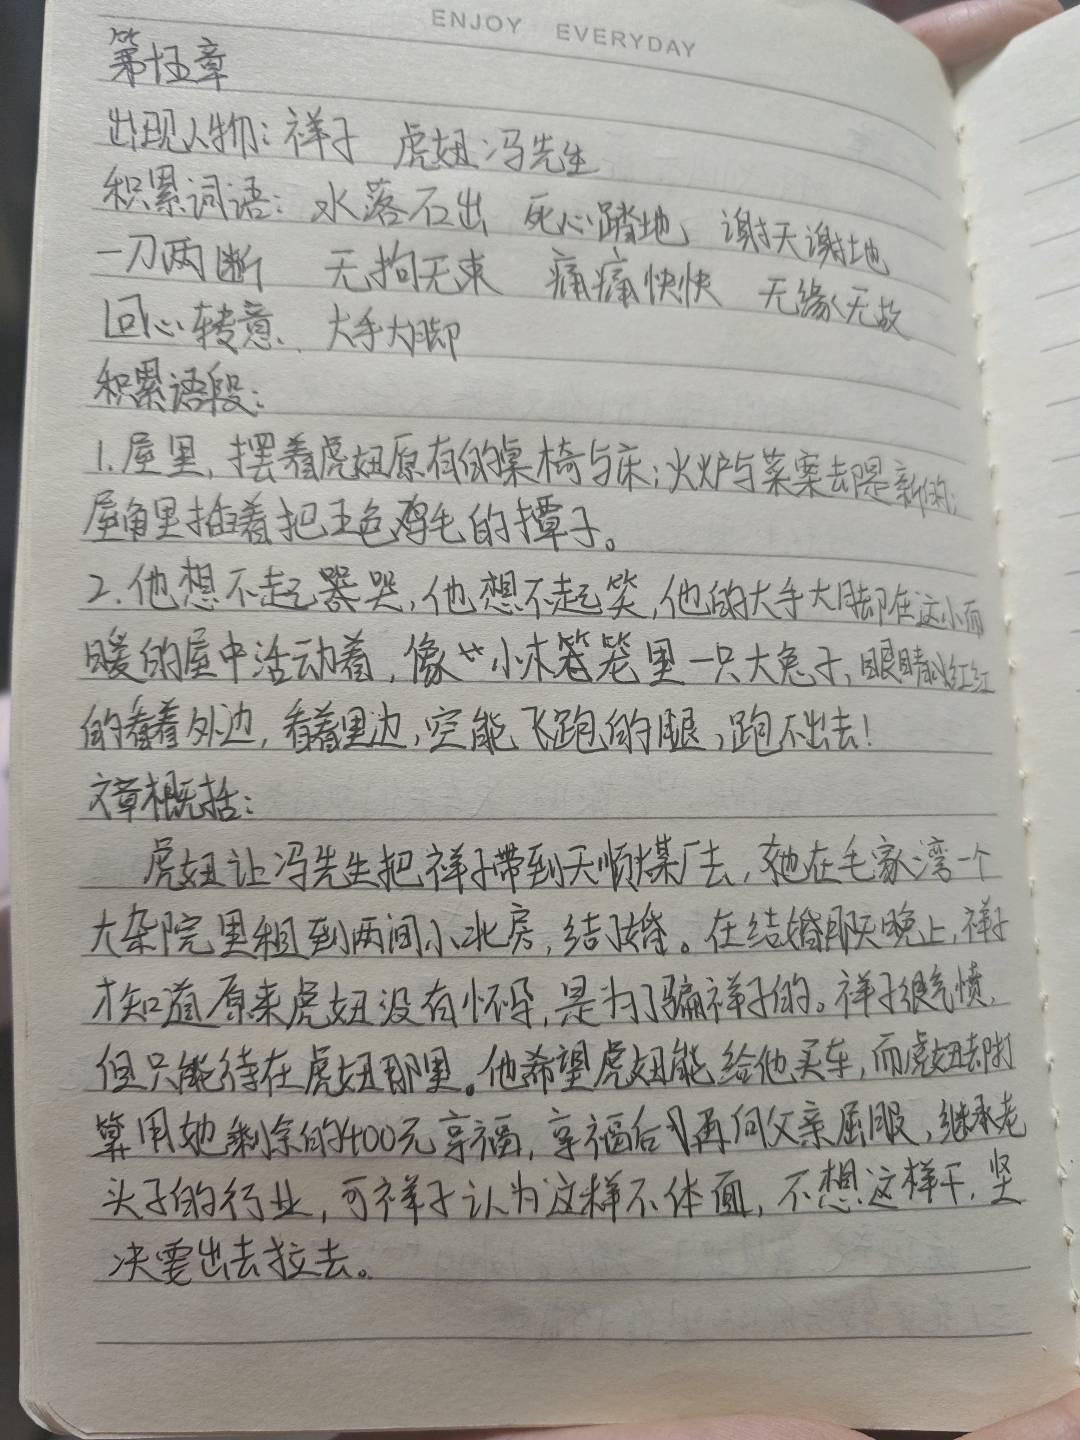 ENJOY EVERYDAY
第十五章
出现人物：祥子 虎妞 冯先生
积累词语：水落石出 死心踏地 谢天谢地
一刀两断 无拘无束 痛痛快快 无缘无故
回心转意 大手大脚
积累语段：
1.屋里，摆着虎妞原有的桌椅与床；火炉与菜案却是新的；
屋角里插着把五色鸡毛的撢子。
2.他想不起哭，他想不起笑，他的大手大脚在这小而
暖的屋中活动着，像小木笼里一只大兔子，眼睛红红
的看着外边，看着里边，空能飞跑的腿，跑不出去！
文章概括：
虎妞让冯先生把祥子带到天顺煤厂去，她在毛家湾一个
大杂院里租到两间小北房，结了婚。在结婚那天晚上，祥子
才知道原来虎妞没有怀孕，是为了骗祥子的。祥子很气愤，
但只能待在虎妞那里。他希望虎妞能给他买车，而虎妞却打
算用她剩余的400元享福，享福后再向父亲屈服，继承老
头子的行业，可祥子认为这样不体面，不想这样干，坚
决要出去拉去。